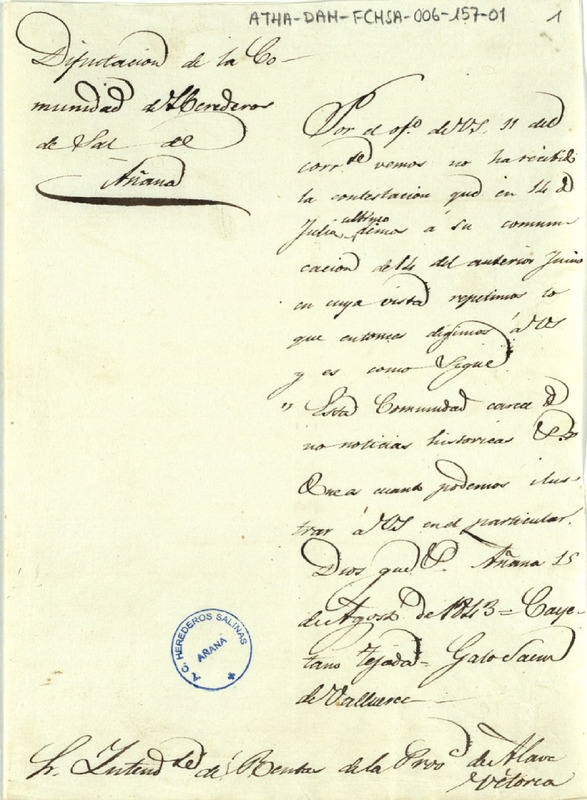 ATHA-DAH-FCHSA-006-157-01
1
Diputacion de la Co-
munidad de Herederos
de Sal de
Añana
Por el ofº de VS. 11 del
corrte vemos no ha recibido
la contestacion que en 14 de
Julio ultimo dimos á su comuni
cacion de 14 del anterior Junio
en cuya vista repetimos lo
que entonces digimos á VS
y es como Sigue
" Esta Comunidad carece d
no noticias historicas &ª
Que es cuanto podemos ilus
trar á VS en el particular.
Dios gue &. Añana 15
de Agosto de 1843 = Caye-
tano Tejada = Galo Saenz
de Valluerca
Sr. Intendte de Rentas de la Provª de Alava
Vitoria
A.C. HEREDEROS SALINAS
AÑANA